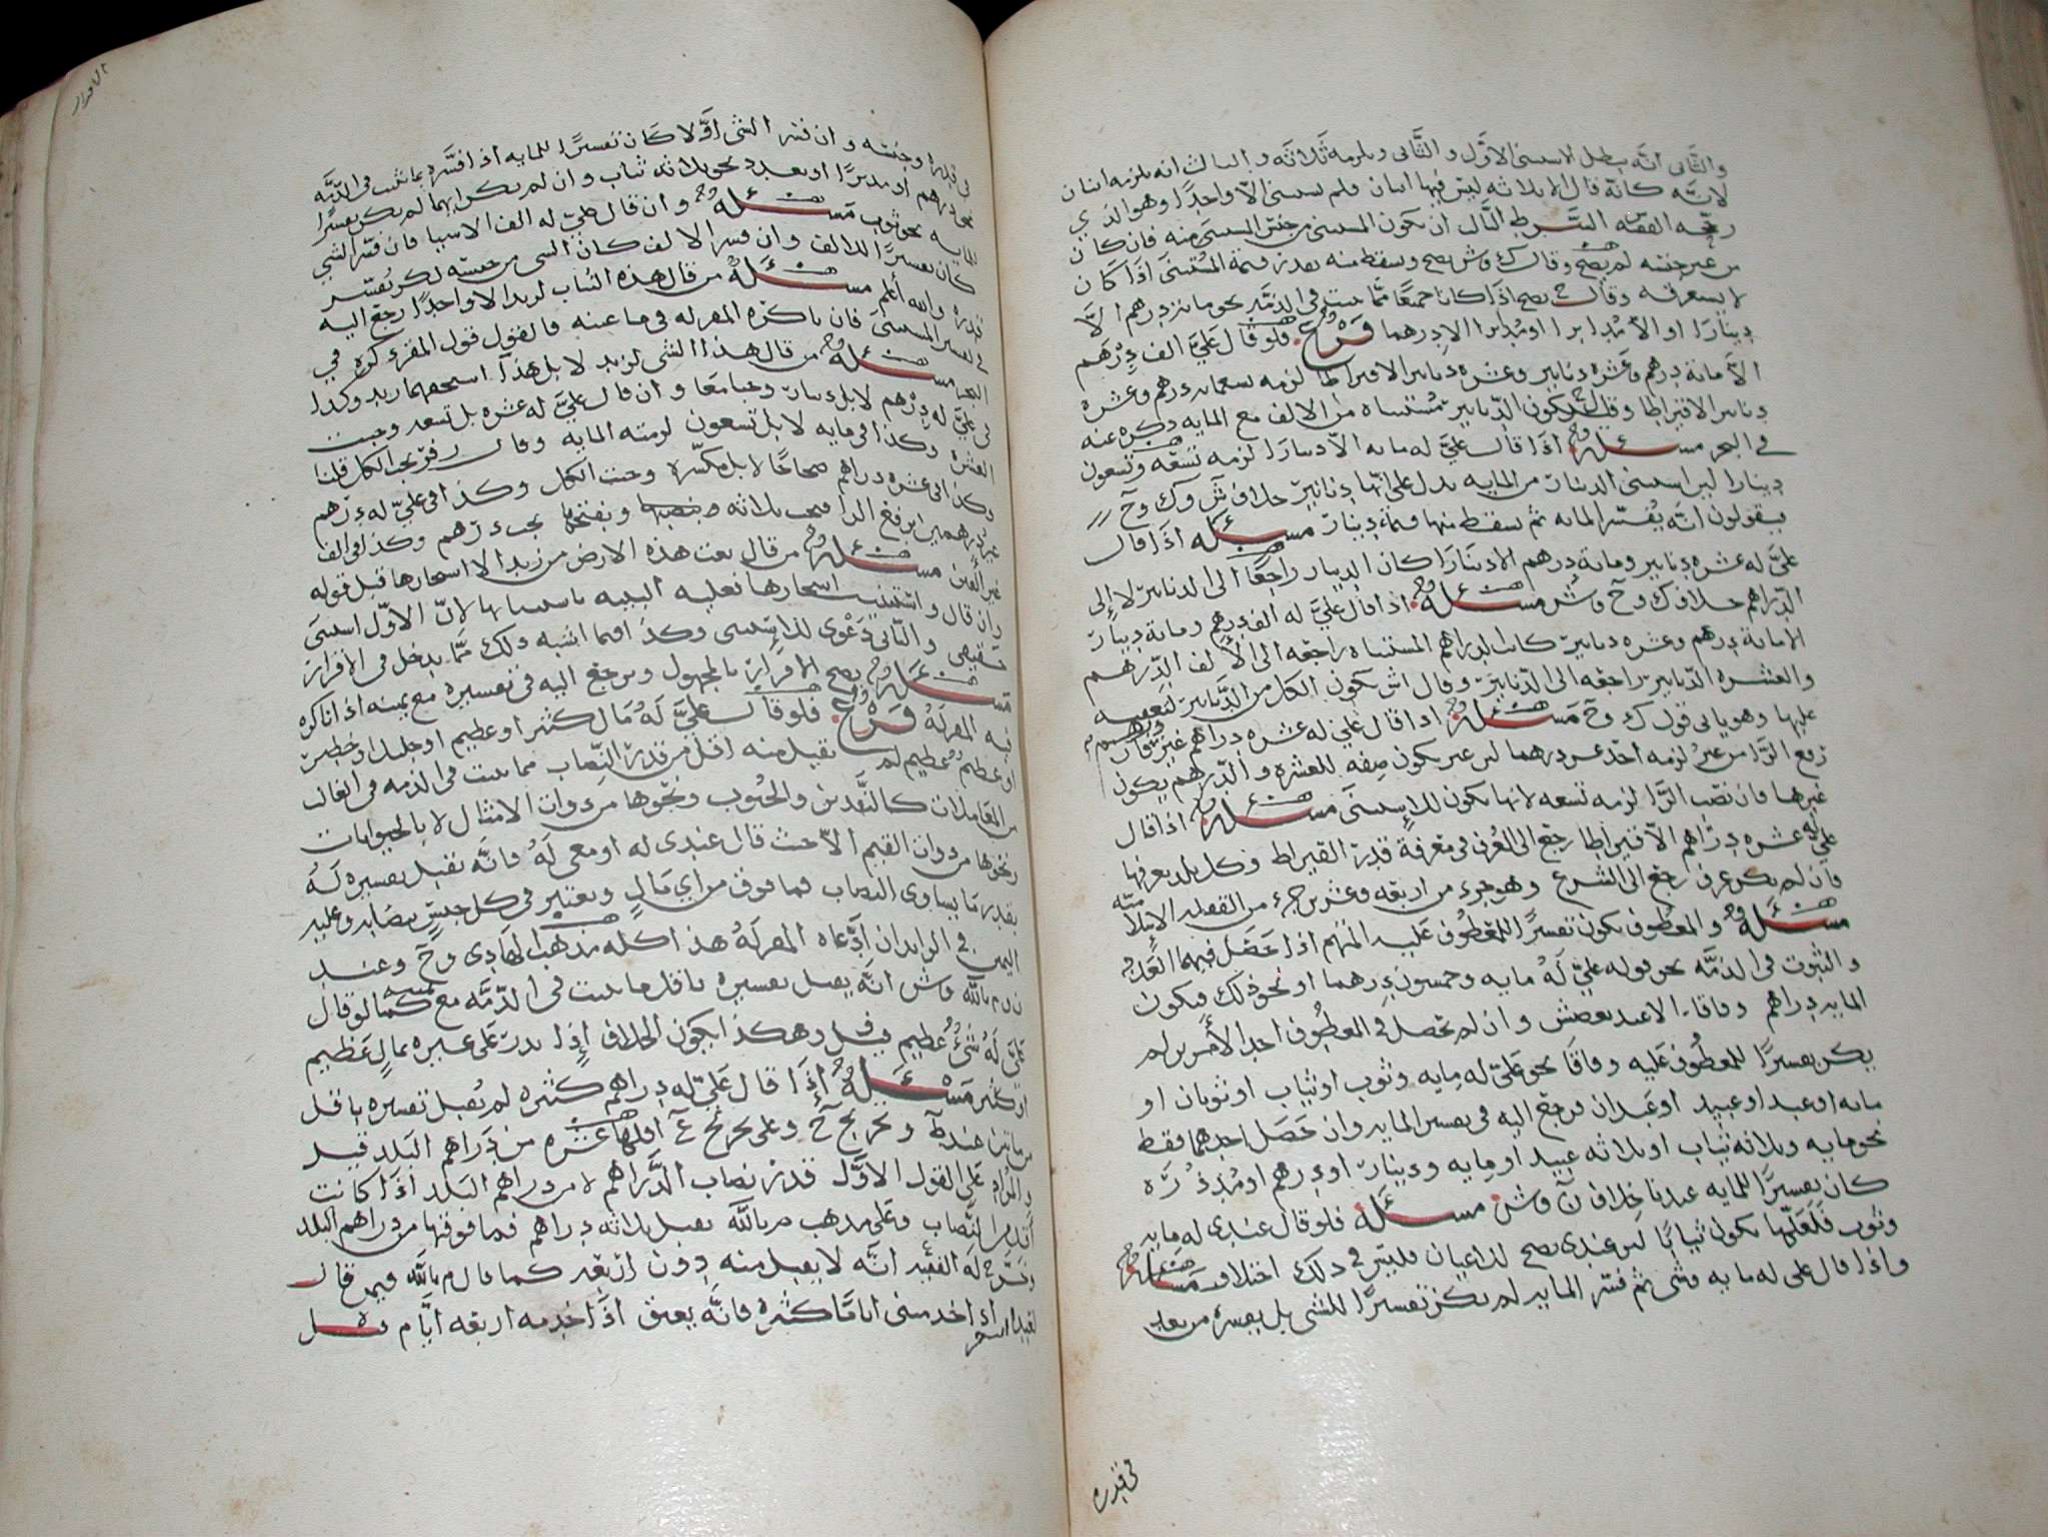 والثاني انه يبطل الاستثنى الاول والثاني ويلزمه ثلاثة والثالث انه يلزمه اثنان
لانه كانه قال الا ثلاثه ليس فيها اثنان فلم يستثنى الا واحدًا وهو الذي
الفقيه الشرط الثالث ان يكون المستثنى من جنس المستثنى منه فان كان
من غير جنسه لم يصح وقال ك وش يصح ويسقط منه بقدر قيمة المستثنى اذا كان
لا يستغرقه وقال ح يصح اذا كانا جميعًا مما يثبت في الذمه نحو ماىة درهم الا
دينارًا او الا مُدا برا او مُد برا الا درهما فرع فلو قال عليّ الف درهم
الا مائة درهم وعشره دنانير وعشره دنانير الا قيراطا لزمه تسعمائه درهم وعشره
دنانير الا قيراطا وقيل تكون الدنانير مستثناه من الالف مع المايه ذكره عنه
في البحر مسئله اذا قال عليّ له مايه الا دينارًا لزمه تسعه وتسعون
دينارا لان استثنى الدينار من المايه يدل على انها دنانير خلاف ش وك وح
يقولون انه يفسر المايه ثم يسقط منها قيمة دينار مسئله اذا قال
عليّ له عشره دنانير ومائة درهم الا دينارًا كان الدينار راجعًا الى الدنانير لا إلى
الدراهم خلاف ك وح وش مسئله اذا قال عليّ له الف درهم ومائة دينار
الا مائة درهم وعشره دنانير كانت الدراهم المستثناه راجعه الى الالف الدرهم
والعشره الدنانير راجعه الى الدنانير وقال ش يكون الكل من الدنانير لتعقيبه
عليها وهو ياتي قول ك وح مسئله اذا قال عليّ له عشره دراهم غير درهم فان
رفع الرا من غير لزمه احد عشر درهما لان غير يكون صفه للعشره والدرهم يكون
غيرها فان نصب الرا لزمه تسعه لانها تكون للاستثنى مسئله اذا قال
عليّ له عشره دراهم الا قيراطا رجع الى العرف في معرفة قدر القيراط في كل بلد بعرفها
فان لم يكن عرف رجع الى الشرع وهو جزء من اربعه وعشرين جزء من القفله الاسلاميّه
مسئله والمعطوف يكون تفسيرًا للمعطوف عليه المبهم اذا حصل فيهما العدد
والثبوت في الذمه نحو قوله عليّ له مايه وخمسون درهما او نحو ذلك فيكون
المايه دراهم وفاقا الا عند بعض ش وان لم يحصل في المعطوف احد الأمرين لم
يكن تفسيرًا للمعطوف عليه وفاقًا نحو عليّ له مايه وثوب او ثياب او ثوبان او
مايه او عبد او عبيد او عبدان فيرجع اليه في تفسير المايه وان حصل احدهما فقط
نحو مايه وثلاثه ثياب او ثلاثه عبيد او مايه ودينار او درهم او مُد ذُره
كان تفسيرًا للمايه عندنا خلاف ن وش مسئله فلو قال عندي له مايه
وثوب فلعلها يكون ثيابًا لان عندي يصح للاعيان فليس في ذلك اختلاف مسئله
واذا قال على له مايه وشي ثم فسّر المايه لم يكن تفسيرًا للشي بل يفسره من بعد
في قدره
الاقرار
في قدره وجنسه وان فسر الشي اوّلا كان تفسيرًا للمايه اذا فسّره بما يثبت في الذمّه
نحو درهم او مد برًا او بعدد نحو ثلاثه ثياب وان لم يكن ايهما لم يكن تفسيرًا
للمايه نحو ثوب مسئله وان قال عليّ له الف الا شيا فان فسّر الشي
كان تفسيرًا للالف وان فسر الالف كان الشي من جنسه لكن يُفسّر
قدره والله أعلم مسئله من قال هذه الثياب لزيد الا واحدًا رجع اليه
في تفسير المستثنى فان ناكره المقر له في ما عينه فالقول قول المقر ذكره في
البحر مسئله من قال هذا الشي لزيد لا بل هذا استحقهما زيد وكذا
في عليّ له درهم لا بل دينار وجبا معًا وان قال عليّ له عشره بل تسعه وجبت
العشره وكذا في مايه لا بل تسعون لزمته المايه وقال زفر يجب الكل قلنا
وكذا في عشره دراهم صحاحًا لا بل مكسّره وجبت الكل وكذا في عليّ له درهم
غير درهمين ان رفع الرا فيجب ثلاثه وبفتحها يجب درهم وكذا في الف
غير الفين مسئله من قال بعت هذه الارض من زيد الا اشجارها قبل قوله
وان قال واستثنيت اشجارها فعليه البينه باستثنائها لانّ الاوّل استثنى
حقيقي والثاني دعوى للاستثنى وكذا فيما اشبه ذلك ممّا يدخل في الاقرار
مسئله يصح الاقرار بالمجهول ويرجع اليه في تفسيره مع يمينه اذا ناكره
فيه المقر له فرع فلو قال عليّ له مال كثير او عظيم او جليل او خطير
او عظيم عظيم لم يقبل منه اقل من قدر النصاب مما يثبت في الذمه في الغالب
من المعاملات كالنقدين والحبوب ونحوها من ذوات الامثال لا بالحيوانات
ونحوها من ذوات القيم الا حيث قال عندي له او معي له فانه يقبل تفسيره له
بقدر ما يساوي النصاب فما فوق من اي مال ويعتبر في كل جنس نصابه وعليه
اليمين في الزايد ان ادّعاه المقر له هذا كله مذهب الهادي وح وعند
ن وم بالله وش انه يقبل تفسيره باقل ما يثبت في الذمّه مع يمينه كما لو قال
عليّ له شيء عظيم وهكذا يكون الخلاف إذا نذر على غيره بمالٍ عظيم
او كثير مسئله إذا قال عليّ له دراهم كثيره لم يُقبل تفسيره باقل
من مائتين عند ط وتخريج ح وعلى تخريج ع اقلها عشره من دراهم البلد قيل
والمراد على القول الاول قدر نصاب الدراهم لا من دراهم البلد اذا كانت
النصاب وعلى مذهب م بالله يقبل ثلاثه دراهم فما فوقها من دراهم البلد
وخرّج له الفقيه انه لا يقبل منه دون اربعه كما قال م بالله فيمن قال
لعبده اذا خدمتني اياما كثيره فانه يعتق اذا خدمه اربعه ايّام قيل